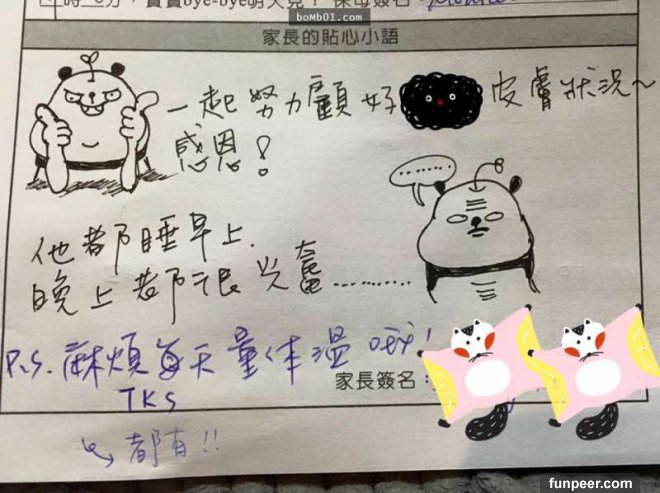 寶寶bye-bye明天見！ 保母簽名：
bomb01.com
家長的貼心小語
一起努力顧好 皮膚狀況~
感恩！
………
他都睡早上.
晚上都很興奮………
P.S. 麻煩每天量体溫哦！
家長簽名：
TKS
都有!!
funpeer.com